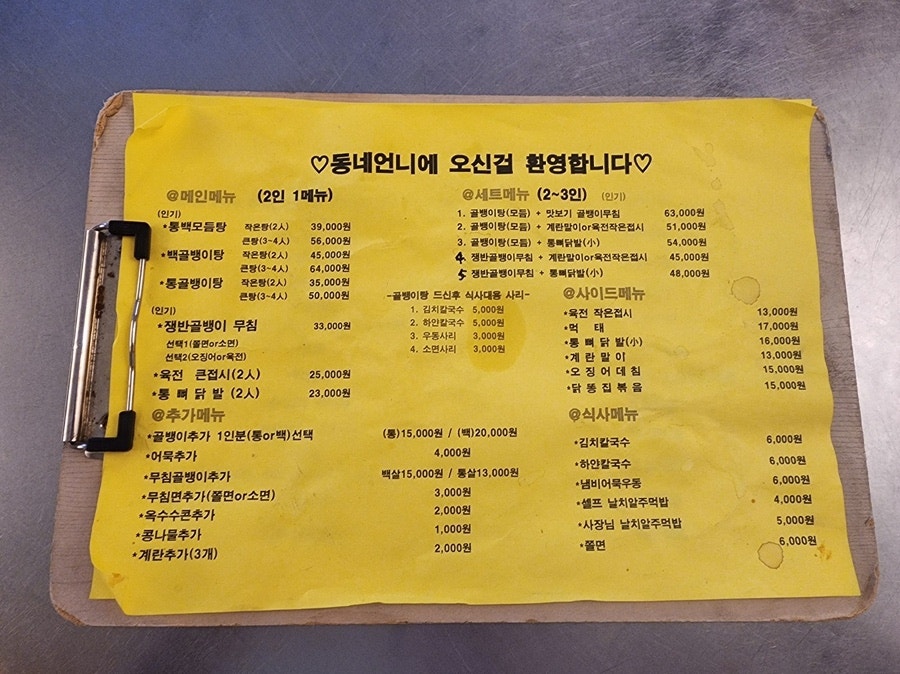 ♡동네언니에 오신걸 환영합니다♡
@메인메뉴 (2인 1메뉴)
(인기)
*통백모듬탕 작은탕(2人) 39,000원
큰탕(3~4人) 56,000원
*백골뱅이탕 작은탕(2人) 45,000원
큰탕(3~4人) 64,000원
*통골뱅이탕 작은탕(2人) 35,000원
큰탕(3~4人) 50,000원
(인기)
*쟁반골뱅이 무침 33,000원
선택1(쫄면or소면)
선택2(오징어or육전)
*육전 큰접시(2人) 25,000원
*통 뼈 닭 발 (2人) 23,000원
@세트메뉴 (2~3인) (인기)
1. 골뱅이탕(모듬) + 맛보기 골뱅이무침 63,000원
2. 골뱅이탕(모듬) + 계란말이or육전작은접시 51,000원
3. 골뱅이탕(모듬) + 통뼈닭발(小) 54,000원
4. 쟁반골뱅이무침 + 계란말이or육전작은접시 45,000원
5 쟁반골뱅이무침 + 통뼈닭발(小) 48,000원
-골뱅이탕 드신후 식사대용 사리-
1. 김치칼국수 5,000원
2. 하얀칼국수 5,000원
3. 우동사리 3,000원
4. 소면사리 3,000원
@사이드메뉴
*육전 작은접시 13,000원
*먹 태 17,000원
*통 뼈 닭 발(小) 16,000원
*계 란 말 이 13,000원
*오 징 어 데 침 15,000원
*닭 똥 집 볶 음 15,000원
@추가메뉴
*골뱅이추가 1인분(통or백)선택 (통)15,000원 / (백)20,000원
*어묵추가 4,000원
*무침골뱅이추가 백살15,000원 / 통살13,000원
*무침면추가(쫄면or소면) 3,000원
*옥수수콘추가 2,000원
*콩나물추가 1,000원
*계란추가(3개) 2,000원
@식사메뉴
*김치칼국수 6,000원
*하얀칼국수 6,000원
*냄비어묵우동 6,000원
*셀프 날치알주먹밥 4,000원
*사장님 날치알주먹밥 5,000원
*쫄면 6,000원